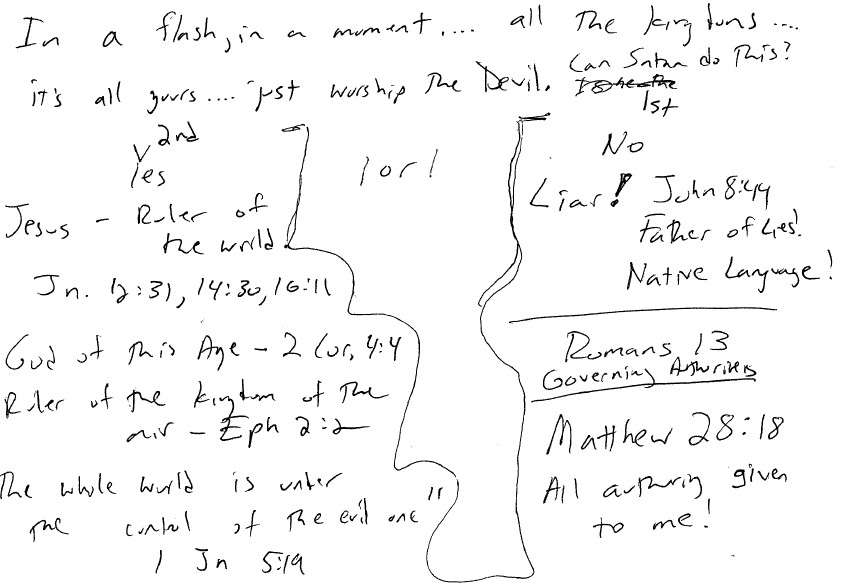 In a flash, in a moment.... all The kingdoms....
it's all yours.... just worship The Devil.
Can Satan do This?
1st
2nd
Yes
Jesus - Ruler of
the world.
Jn. 12:31, 14:30, 16:11
God of This Age - 2 Cor, 4:4
Ruler of the kingdom of The
air - Eph 2:2
The whole world is under
The control of The evil one"
1 Jn 5:19
1 or 1
No
Liar! John 8:44
Father of Lies!
Native Language!
Romans 13
Governing Authorities
Matthew 28:18
All authority given
to me!